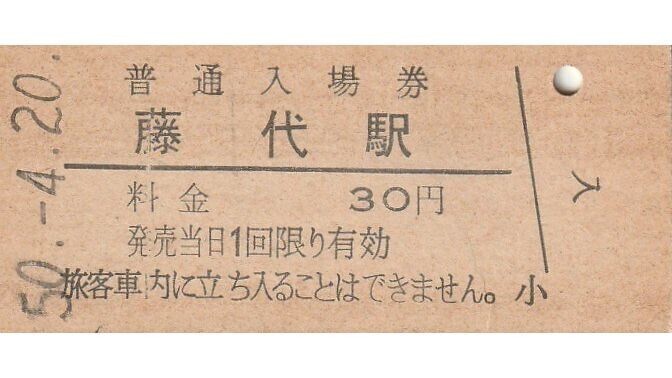 50.-4.20.
普通入場券
藤代駅
料金 30円
発売当日1回限り有効
旅客車内に立ち入ることはできません。 小
入